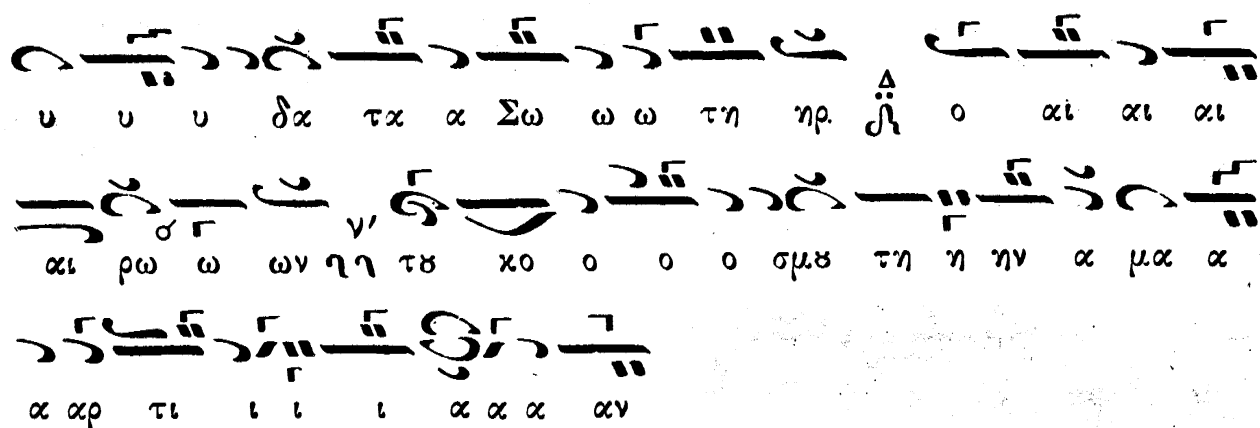 υ υ υ δα τα α Σω ω ω τη ηρ. Δ ο αἰ αι αι
αι ρω ω ων ν' τȣ κο ο ο ο σμȣ τη η ην α μα α
α αρ τι ι ι ι α α α αν